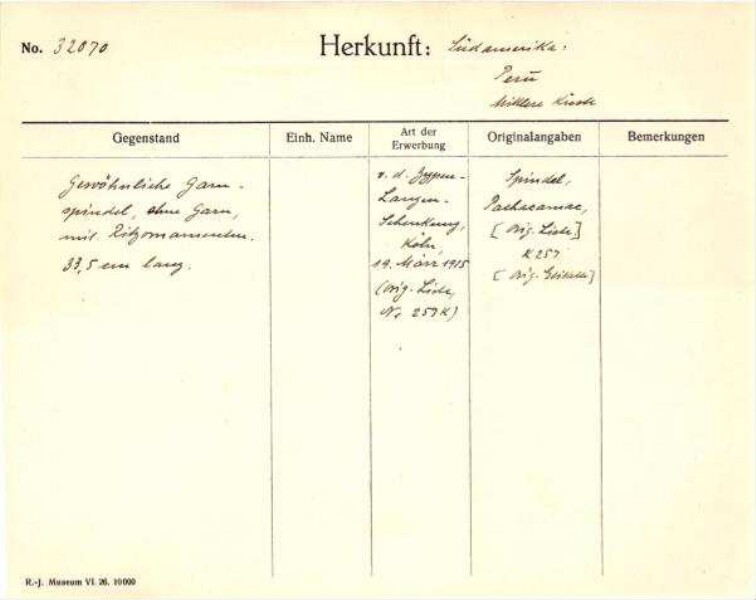 No. 32070
Herkunft: Südamerika:
Perü
Mittlere Küste
Gegenstand
Einh. Name
Art der
Erwerbung
Originalangaben
Bemerkungen
Gewöhnliche Garn-
spindel, ohne Garn,
mit Ritzornamenten.
33,5 cm lang.
v. d. Zypen-
Langen-
Schenkung,
Köln,
19. März 1915
(Orig. Liste,
Nr 257 K)
Spindel,
Pachacamac,
[Orig. Liste]
K 257
[Orig. Etikette]
R.-J. Museum VI. 26. 10000